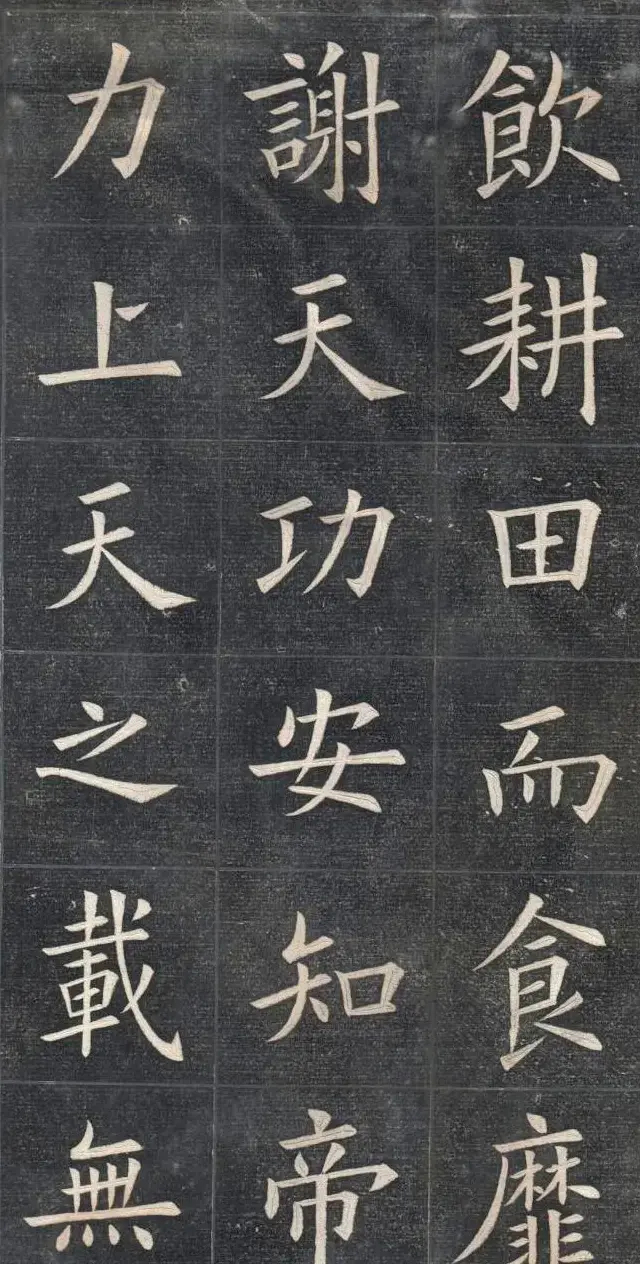 飲耕田而食靡
謝天功安知帝
力上天之載無